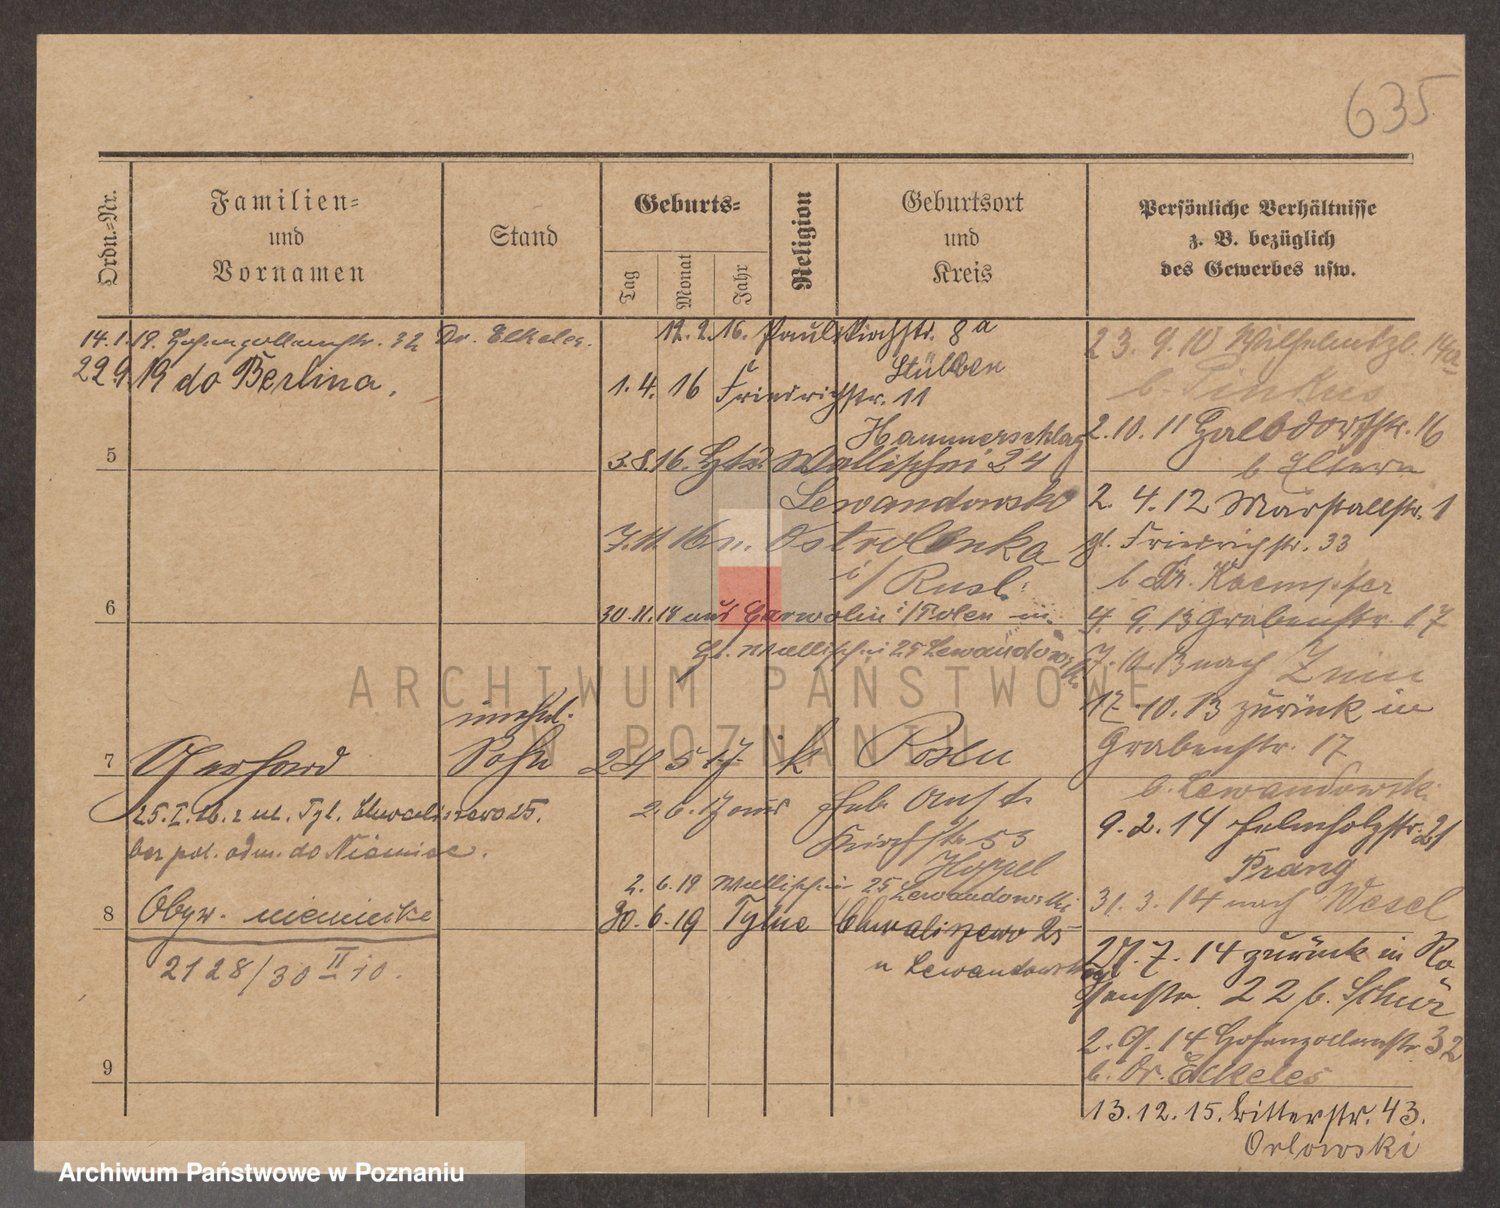 635
Ordn.-Nr.
Familien-
und
Vornamen
Stand
Geburts-
Tag
Monat
Jahr
Religion
Geburtsort
und
Kreis
Persönliche Verhältnisse
z. B. bezüglich
des Gewerbes usw.
14.1.19. Hohenzollernstr. 32 Dr. Elkeles.
22.9.19 do Berlina.
12.2.16. Paulikirchstr. 8a
Stülben
1.4.16 Friedrichstr. 11
Hammerschlag
5
3.8.16. Wallischei 24
Lewandowski
7.11.16 n. Ostrolenka
i/Rusl.
6
30.11.18 aus Garwolin i/Polen in
Wallischei 25 Lewandowski
unehel.
7 Gerhard Sohn 24 5 17 k Posen
2.6.17 aus Heb. Anst.
Kirchstr. 53
Hoppel
2.6.19 Wallischei 25 Lewandowski
30.6.19 Tylne Chwaliszewo 25
u Lewandowski
do Niemiec.
8 Obyw. niemiecki
2128/30 II 10.
9
23.9.10 Wilhelmspl. 14a
b. Pinkus
2.10.11 str. 16
b Eltern
2.4.12 Marstallstr. 1
Friedrichstr. 33
b Dr. Kaempfer
4.9.13 Grabenstr. 17
nach Znin
17.10.13 zurück in
Grabenstr. 17
b. Lewandowski
9.2.14 Helmholzstr. 21
Prang
31.3.14 nach Wesel
27.7.14 zurück in Ro
senstr. 22 b. Schür
2.9.14 Hohenzollernstr. 32
b. Dr. Elkeles
13.12.15. Ritterstr. 43.
Orlowski
ARCHIWUM PAŃSTWOWE
W POZNANIU
Archiwum Państwowe w Poznaniu